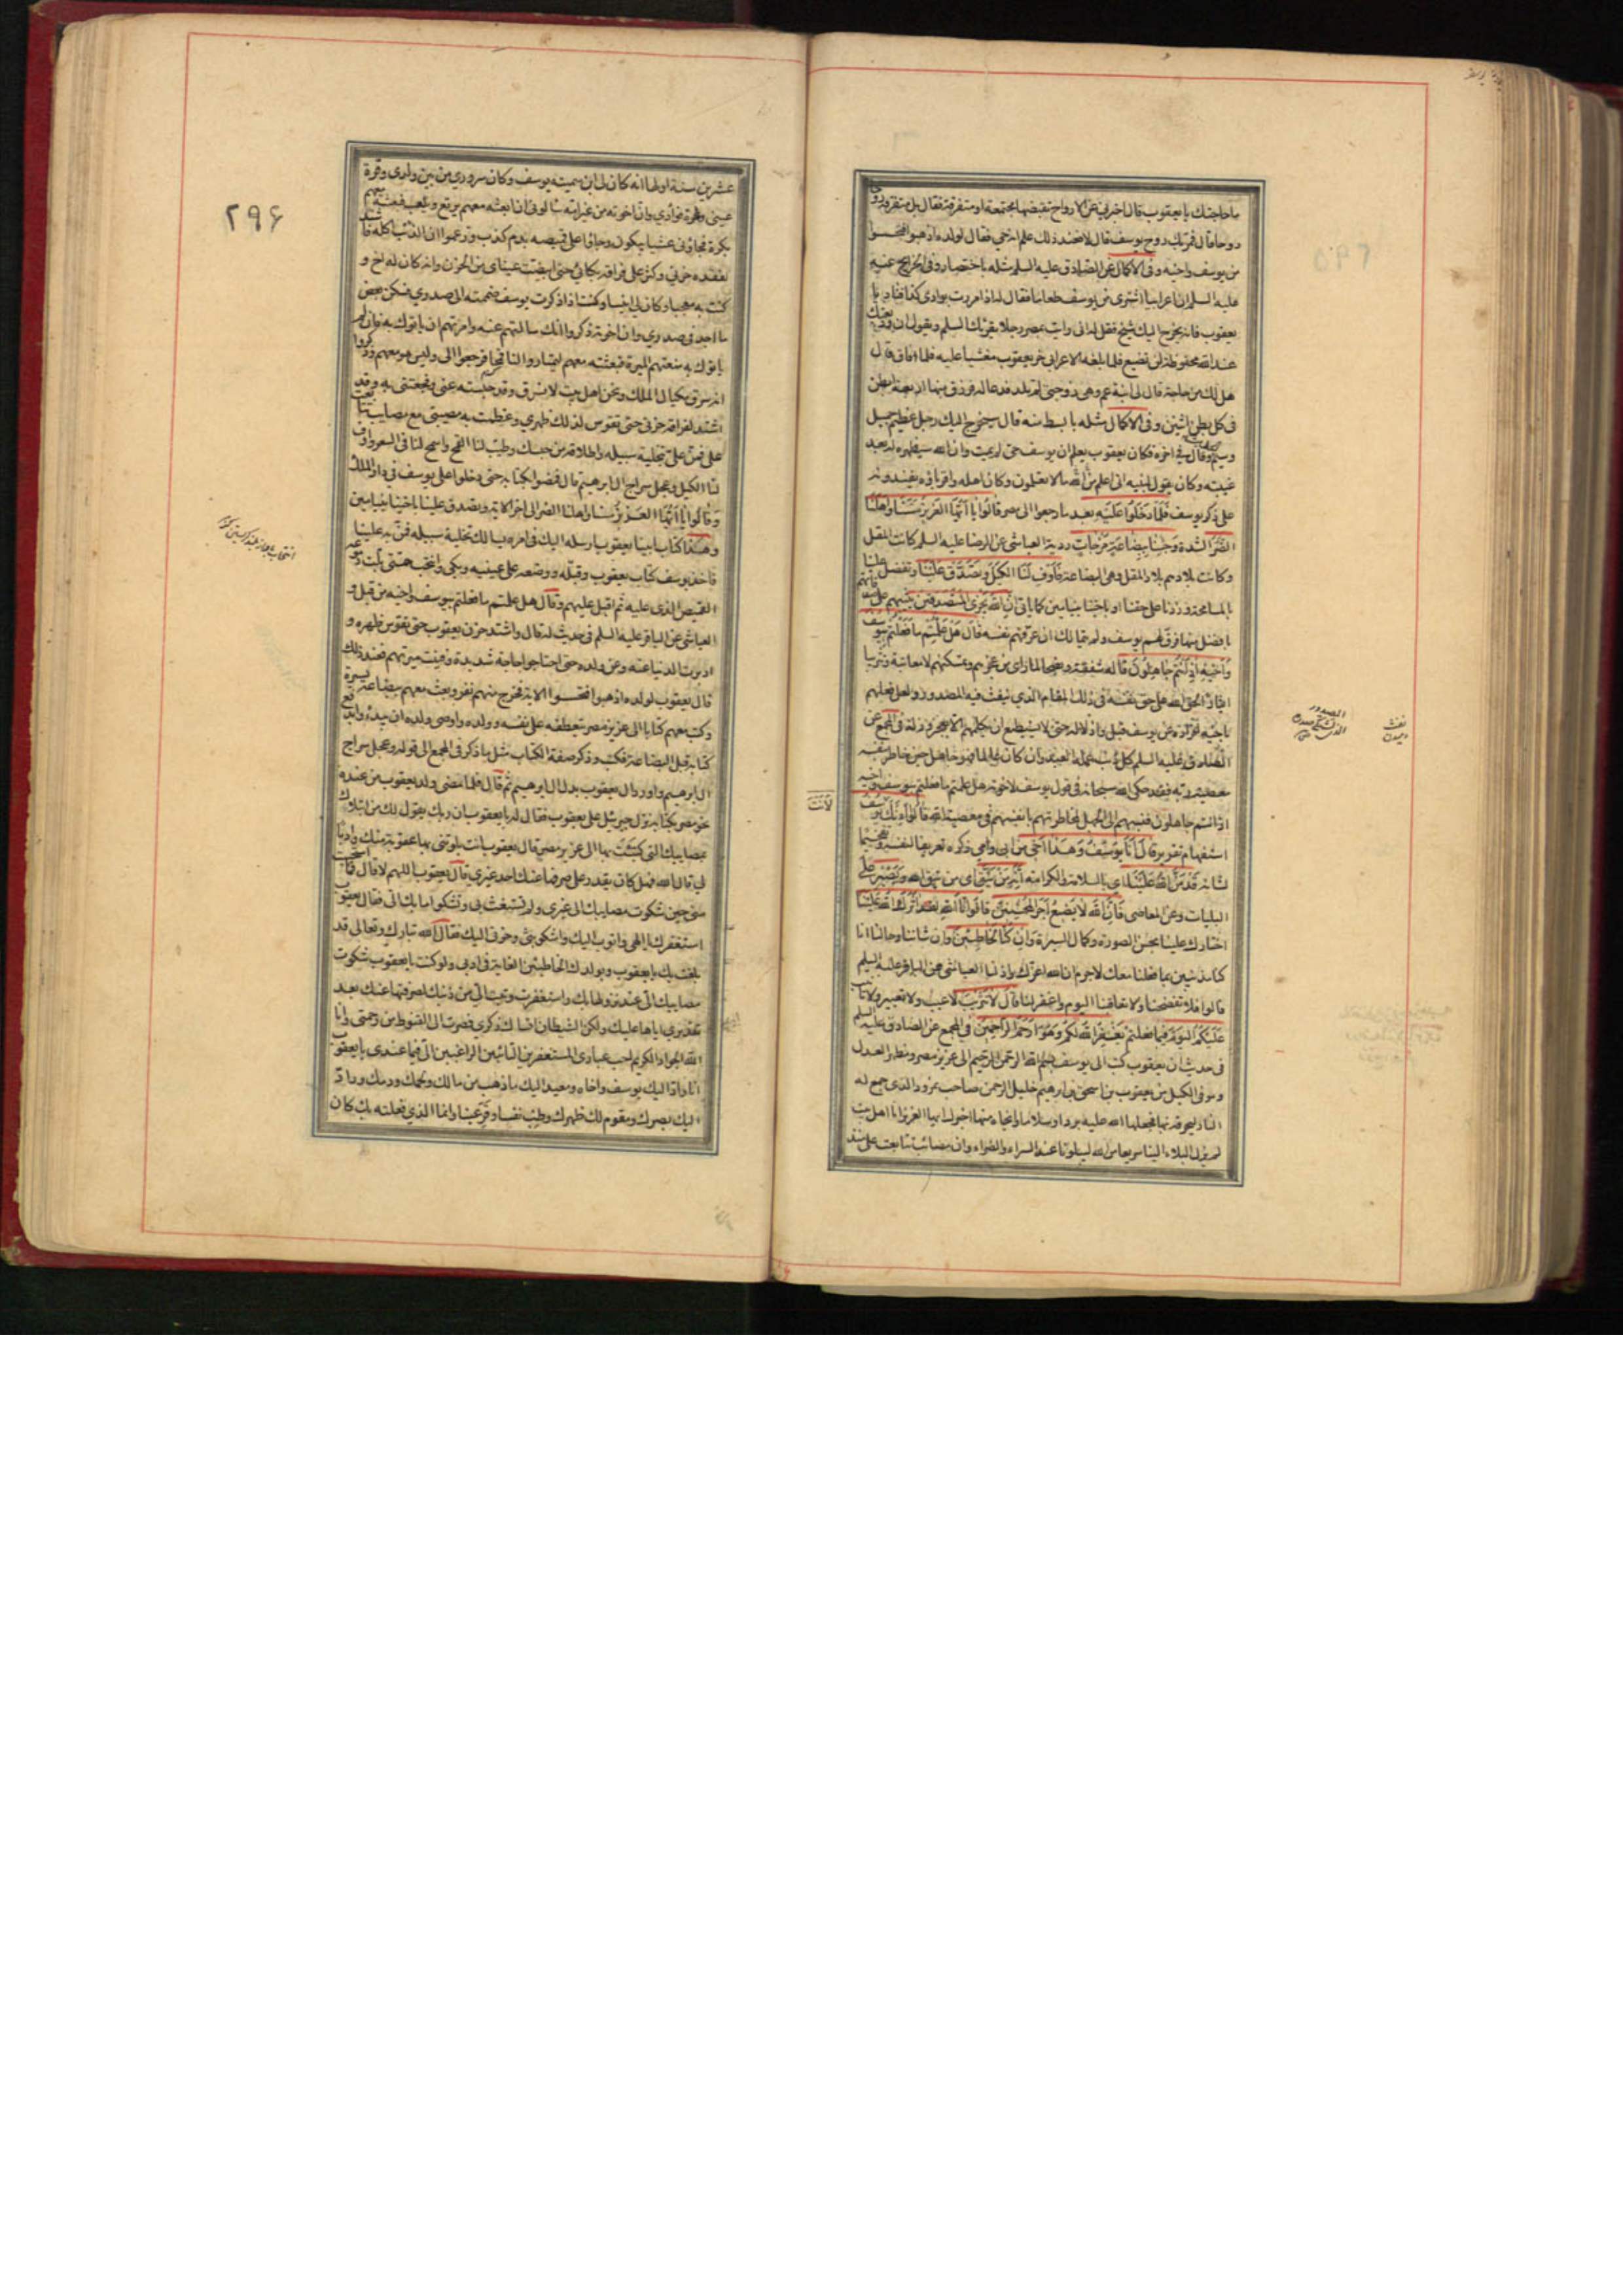 ما حاجتك يا يعقوب قال اخبرني عن الارواح تقبضها مجتمعة او متفرقة فقال بل متفرقة روحا
روحا قال فمر بك روح يوسف قال لا فعند ذلك علم انه حي فقال لولده اذهبوا فتحسسوا
من يوسف واخيه وفي الاكمال عن الصادق عليه السلم مثله باختصار وفي الخرايج عنه
عليه السلم ان اعرابيا اشترى من يوسف طعاما فقال له اذا مررت بوادي كذا فناد يا
يعقوب فانه يخرج اليك شيخ فقل له اني رايت بمصر رجلا يقرئك السلم ويقول ان وديعتك
عند الله محفوظة لن تضيع فلما بلغه الاعرابي خر يعقوب مغشيا عليه فلما افاق قال
هل لك من حاجة قال لي ابنة عم وهي زوجتي لم تلد فدعا له فرزق منها اربعة ابطن
في كل بطن اثنين وفي الاكمال مثله بابسط منه قال
وقال في اخره فكان يعقوب يعلم ان يوسف حي لم يمت وان الله سيظهره له بعد
غيبته وكان يقول لبنيه اني اعلم من الله ما لا تعلمون وكان اهله واقرباؤه يفندونه
على ذكر يوسف فَلَمَّا دَخَلُوا عَلَيْهِ بعد ما رجعوا الى مصر قَالُوا يَا أَيُّهَا الْعَزِيزُ مَسَّنَا وَأَهْلَنَا
الضُّرُّ الشدة وَجِئْنَا بِبِضَاعَةٍ مُزْجَاةٍ ردية العياشي عن الرضا عليه السلم كانت المقل
وكانت بلادهم بلاد المقل وهي البضاعة فَأَوْفِ لَنَا الْكَيْلَ وَتَصَدَّقْ عَلَيْنَا وتفضل علينا
بالمسامحة وزدنا على حقنا او باخينا بنيامين كما ياتي إِنَّ اللَّهَ يَجْزِي الْمُتَصَدِّقِينَ
قَالَ هَلْ عَلِمْتُمْ مَا فَعَلْتُمْ بِيُوسُفَ
وَأَخِيهِ إِذْ أَنْتُمْ جَاهِلُونَ قاله شفقة ونصحا لما راى من عجزهم وتمسكنهم لا معاتبة وتثريبا
ايثارا لحق الله على حق نفسه في ذلك المقام الذي ينفث فيه المصدور ولعل فعلهم
باخيه افراده عن يوسف قبل واذلاله حتى لا يستطيع ان يكلمهم الا بعجز وذلة في المجمع عن
الصادق عليه السلم كل ذنب عمله العبد وان كان عالما فهو جاهل حين خاطر بنفسه
معصية ربه فقد حكى الله سبحانه في قول يوسف لاخوته هل علمتم ما فعلتم بيوسف واخيه
اذ انتم جاهلون فنسبهم الى الجهل لمخاطرتهم بانفسهم في معصية الله قَالُوا أَئِنَّكَ يوسف
استفهام تقرير قَالَ أَنَا يُوسُفُ وَهَذَا أَخِي من ابي وامي ذكره تعريفا لنفسه وتفخيما
لشانه قَدْ مَنَّ اللَّهُ عَلَيْنَا اي بالسلامة والكرامة إِنَّهُ مَنْ يَتَّقِ اي من يتق الله وَيَصْبِرْ على
البليات وعن المعاصي فَإِنَّ اللَّهَ لَا يُضِيعُ أَجْرَ الْمُحْسِنِينَ قَالُوا تَاللَّهِ لَقَدْ آثَرَكَ اللَّهُ عَلَيْنَا
اختارك علينا بحسن الصورة وكمال السيرة وَإِنْ كُنَّا لَخَاطِئِينَ وان شاننا وحالنا انا
كنا مذنبين بما فعلنا معك لا جرم ان الله اعزك واذلنا العياشي عن الباقر عليه السلم
قالوا فلا تفضحنا ولا تعاقبنا اليوم واغفر لنا قَالَ لَا تَثْرِيبَ لا عيب ولا تعيير ولا تانيب
عَلَيْكُمُ الْيَوْمَ فيما فعلتم يَغْفِرُ اللَّهُ لَكُمْ وَهُوَ أَرْحَمُ الرَّاحِمِينَ في المجمع عن الصادق عليه السلم
في حديث ان يعقوب كتب الى يوسف بسم الله الرحمن الرحيم الى عزيز مصر ومظهر العدل
وموفي الكيل من يعقوب بن اسحق بن ابرهيم خليل الرحمن صاحب نمرود الذي جمع له
النار ليحرقه بها فجعلها الله عليه بردا وسلاما وانجاه منها اخبرك ايها العزيز انا اهل بيت
لم يزل البلاء الينا سريعا من الله ليبلونا عند السراء والضراء وان مصائب تتابعت علي منذ
لأنت
٢٩۶
عشرين سنة اولها انه كان لي ابن سميته يوسف وكان سروري من بين ولدي وقرة
عيني وثمرة فؤادي وان اخوته من غير امه سالوني ان ابعثه معهم يرتع ويلعب فبعثته معهم
بكرة فجاؤني عشيا يبكون وجاؤا على قميصه بدم كذب وزعموا ان الذئب اكله فاشتد
لفقده حزني وكثر على فراقه بكائي حتى ابيضت عيناي من الحزن وانه كان له اخ و
كنت به معجبا وكان لي انيسا وكنت اذا ذكرت يوسف ضممته الى صدري فسكن بعض
ما اجد في صدري وان اخوته ذكروا انك سالتهم عنه وامرتهم ان ياتوك به فان لم
ياتوك به منعتهم الميرة فبعثته معهم ليمتاروا لنا قمحا فرجعوا الي وليس هو معهم وذكروا
انه سرق مكيال الملك ونحن اهل بيت لا نسرق وقد حبسته عني وفجعتني به وقد
اشتد لفراقه حزني حتى تقوس لذلك ظهري وعظمت به مصيبتي مع مصايب تتابعت
علي فمن علي بتخلية سبيله واطلاقه من حبسك وطيب لنا القمح واسمح لنا في السعر واوف
لنا الكيل وعجل سراح ال ابرهيم قال فمضوا بكتابه حتى دخلوا على يوسف في دار الملك
وَقَالُوا يَا أَيُّهَا الْعَزِيزُ مَسَّنَا واهلنا الضر الى اخر الاية وتصدق علينا باخينا بنيامين
وهذا كتاب ابينا يعقوب ارسله اليك في امره يسالك تخلية سبيله فمن به علينا
فاخذ يوسف كتاب يعقوب وقبله ووضعه على عينيه وبكى وانتحب حتى بلت دموعه
القميص الذي عليه ثم اقبل عليهم وقال هل علمتم ما فعلتم بيوسف واخيه من قبل و
العياشي عن الباقر عليه السلم في حديث له قال واشتد حزن يعقوب حتى تقوس ظهره و
ادبرت الدنيا عنه وعن ولده حتى احتاجوا حاجة شديدة وفنيت ميرتهم فعند ذلك
قال يعقوب لولده اذهبوا فتحسسوا الاية فخرج منهم نفر وبعث معهم ببضاعة يسيرة
وكتب معهم كتابا الى عزيز مصر يتعطفه على نفسه وولده واوصى ولده ان يبدءوا بدفع
كتابه قبل البضاعة فكتب وذكر صفة الكتاب مثل ما ذكر في المجمع الى قوله وعجل سراح
ال ابرهيم واورد ال يعقوب بدل ال ابرهيم ثم قال فلما مضى ولد يعقوب من عنده
نحو مصر بكتابه نزل جبرئيل على يعقوب فقال له يا يعقوب ان ربك يقول لك من ابتلاك
بمصايبك التي كتبت بها الى عزيز مصر قال يعقوب انت بلوتني بها عقوبة منك وادبا
لي قال الله فهل كان يقدر على صرفها عنك احد غيري قال يعقوب اللهم لا قال فما استحييت
مني حين شكوت مصايبك الى غيري ولم تستغث بي وتشكو ما بك الي فقال يعقوب
استغفرك يا الهي واتوب اليك واشكو بثي وحزني اليك فقال الله تبارك وتعالى قد
بلغت بك يا يعقوب وبولدك الخاطئين الغاية في ادبي ولو كنت يا يعقوب شكوت
مصايبك الي عند نزولها بك واستغفرت وتبت الي من ذنبك لصرفتها عنك بعد
تقديري اياها عليك ولكن الشيطان انساك ذكري فصرت الى القنوط من رحمتي وانا
الله الجواد الكريم احب عبادي المستغفرين التائبين الراغبين الي فيما عندي يا يعقوب
انا راد اليك يوسف واخاه ومعيد اليك ما ذهب من مالك ولحمك ودمك وراد
اليك بصرك ومقوم لك ظهرك وطب نفسا وقر عينا وانما الذي فعلته بك كان